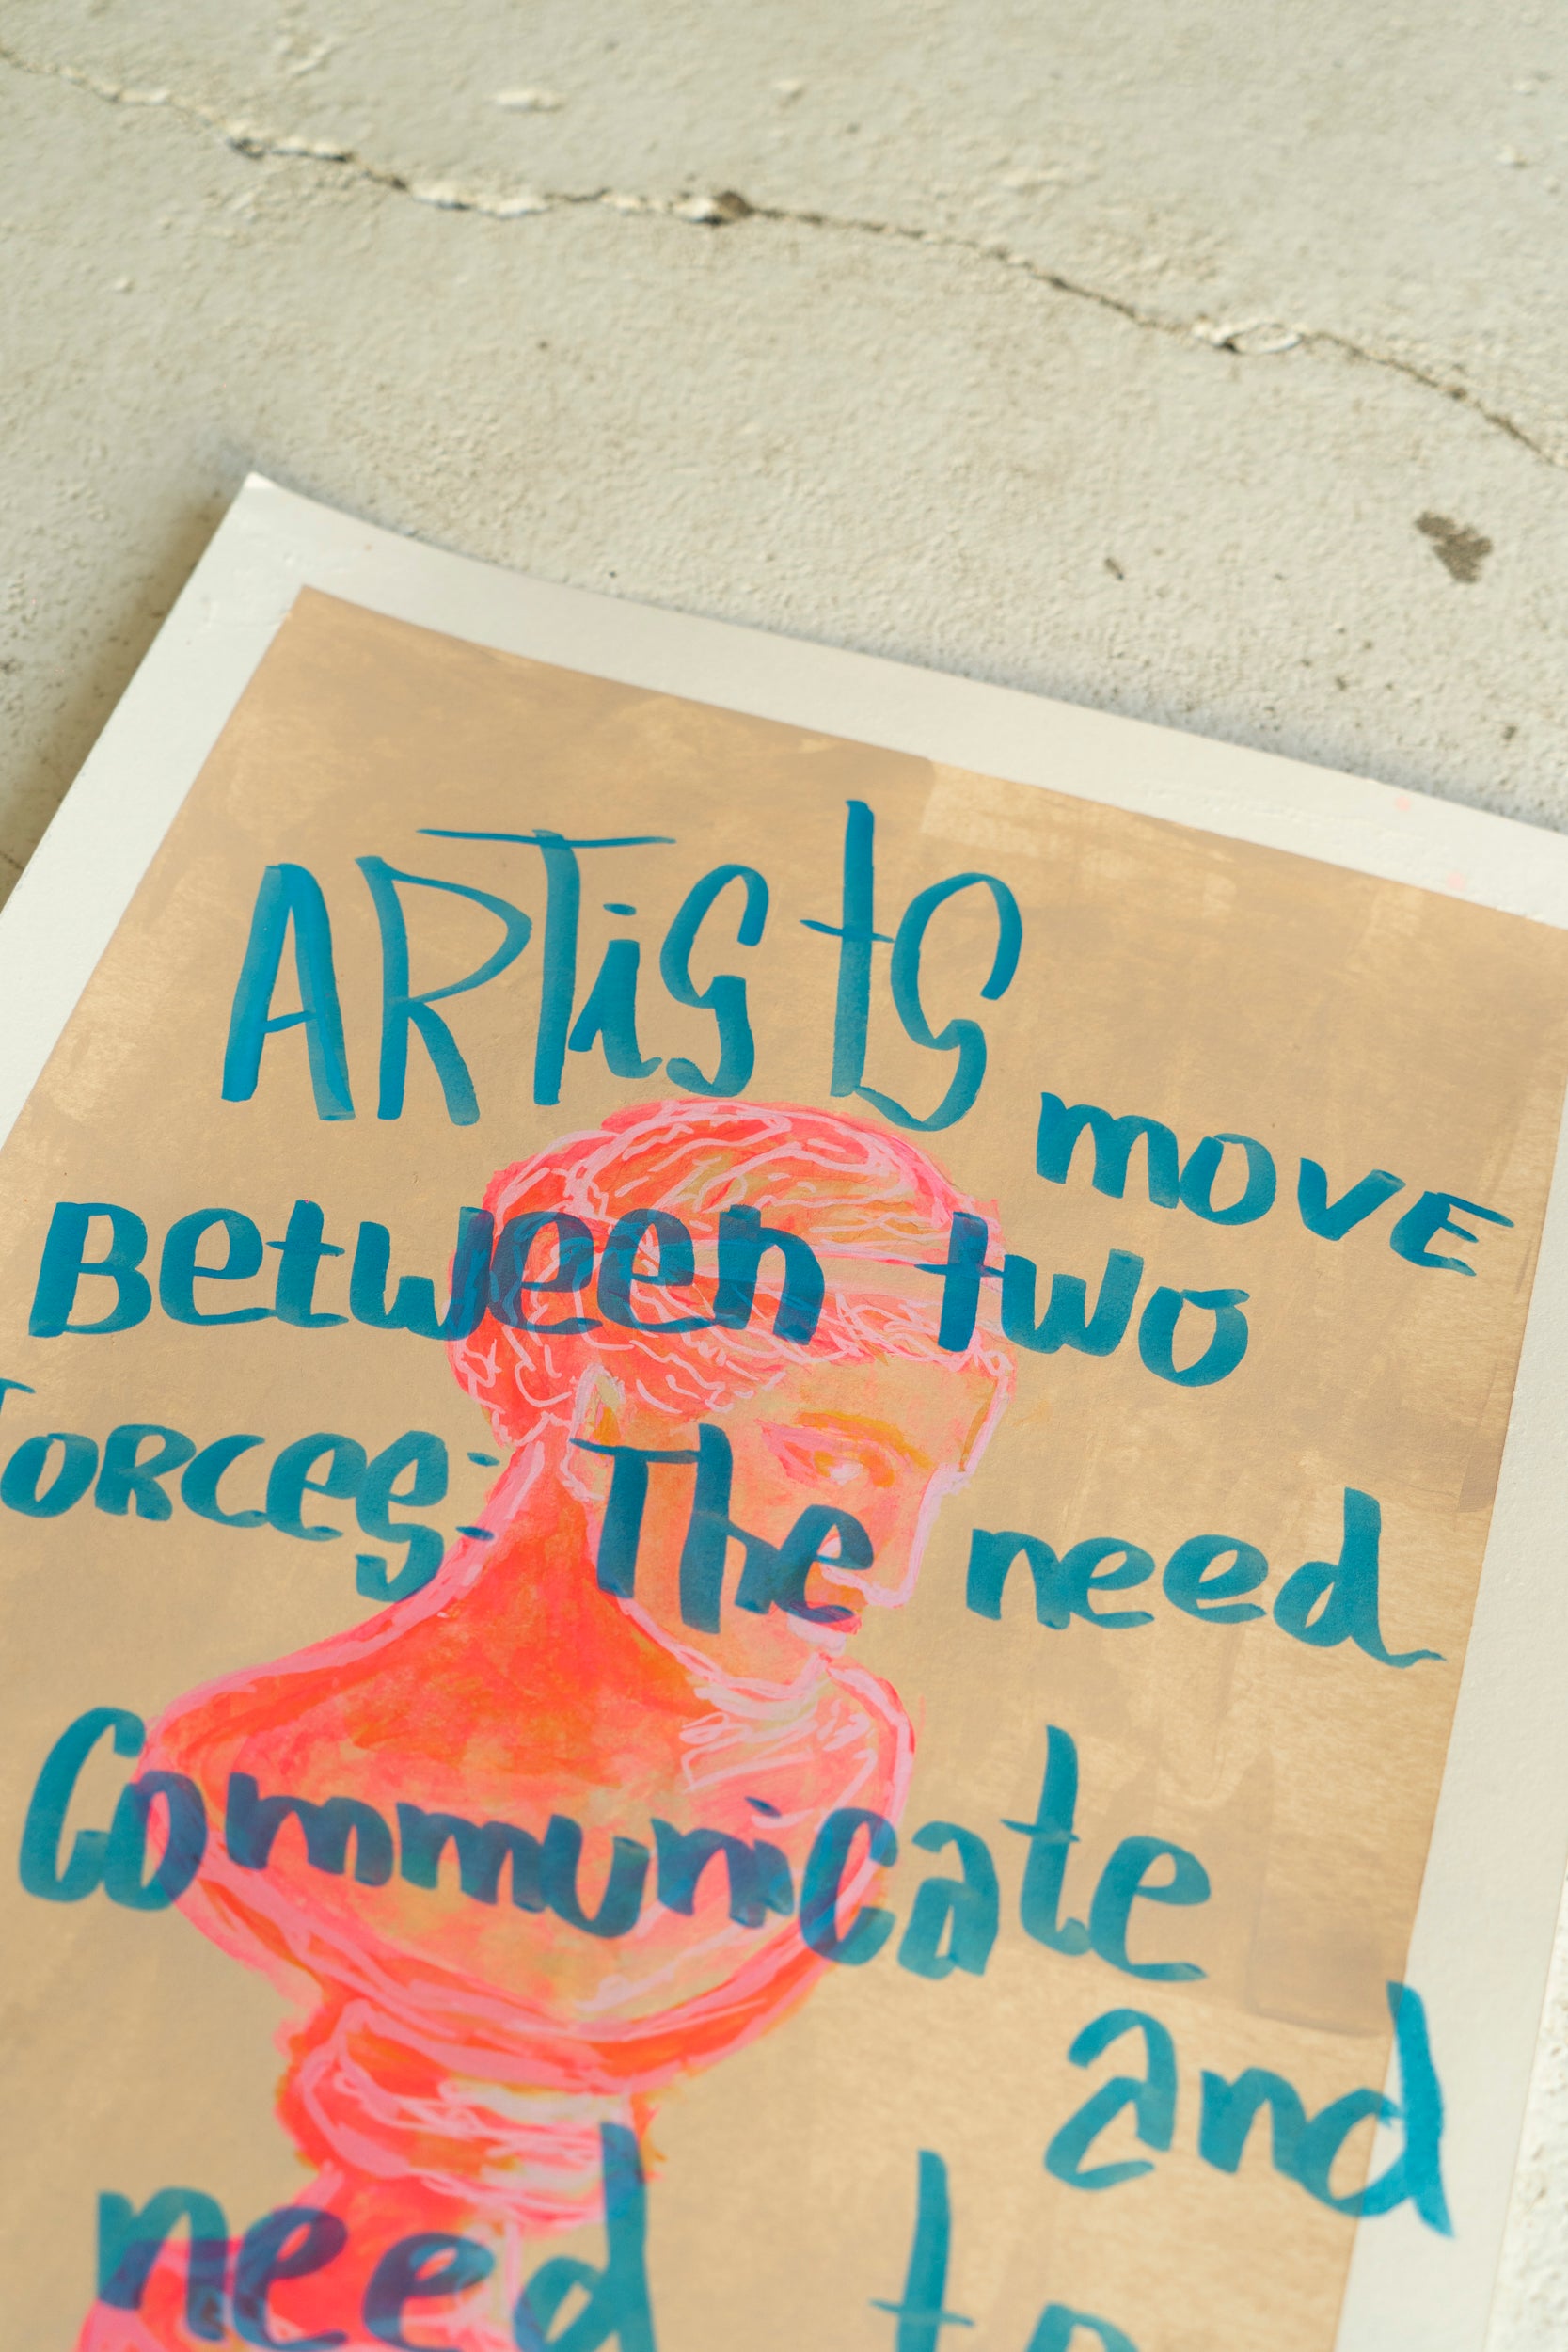 ARTists move
Between two
Forces: The need
Communicate
and
need to